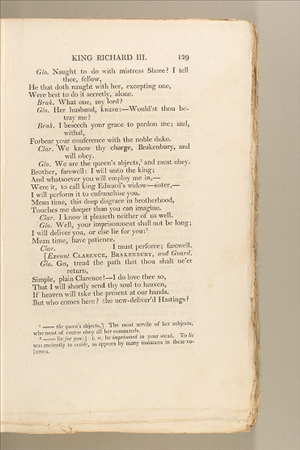 KING RICHARD III. 129
Glo. Naught to do with mistress Shore? I tell
thee, fellow,
He that doth naught with her, excepting one,
Were best to do it secretly, alone.
Brak. What one, my lord?
Glo. Her husband, knave:—Would'st thou be-
tray me?
Brak. I beseech your grace to pardon me; and,
withal,
Forbear your conference with the noble duke.
Clar. We know thy charge, Brakenbury, and
will obey.
Glo. We are the queen's abjects,¹ and must obey.
Brother, farewell: I will unto the king;
And whatsoever you will employ me in,—
Were it, to call king Edward's widow—sister,—
I will perform it to enfranchise you.
Mean time, this deep disgrace in brotherhood,
Touches me deeper than you can imagine.
Clar. I know it pleaseth neither of us well.
Glo. Well, your imprisonment shall not be long;
I will deliver you, or else lie for you:²
Mean time, have patience.
Clar. I must perforce; farewell.
[Exeunt CLARENCE, BRAKENBURY, and Guard.
Glo. Go, tread the path that thou shalt ne'er
return,
Simple, plain Clarence!—I do love thee so,
That I will shortly send thy soul to heaven,
If heaven will take the present at our hands.
But who comes here? the new-deliver'd Hastings?
¹ —— the queen's abjects,] The most servile of her subjects,
who must of course obey all her commands.
² —— lie for you:] i. e. be imprisoned in your stead. To lie
was anciently to reside, as appears by many instances in these vo-
lumes.